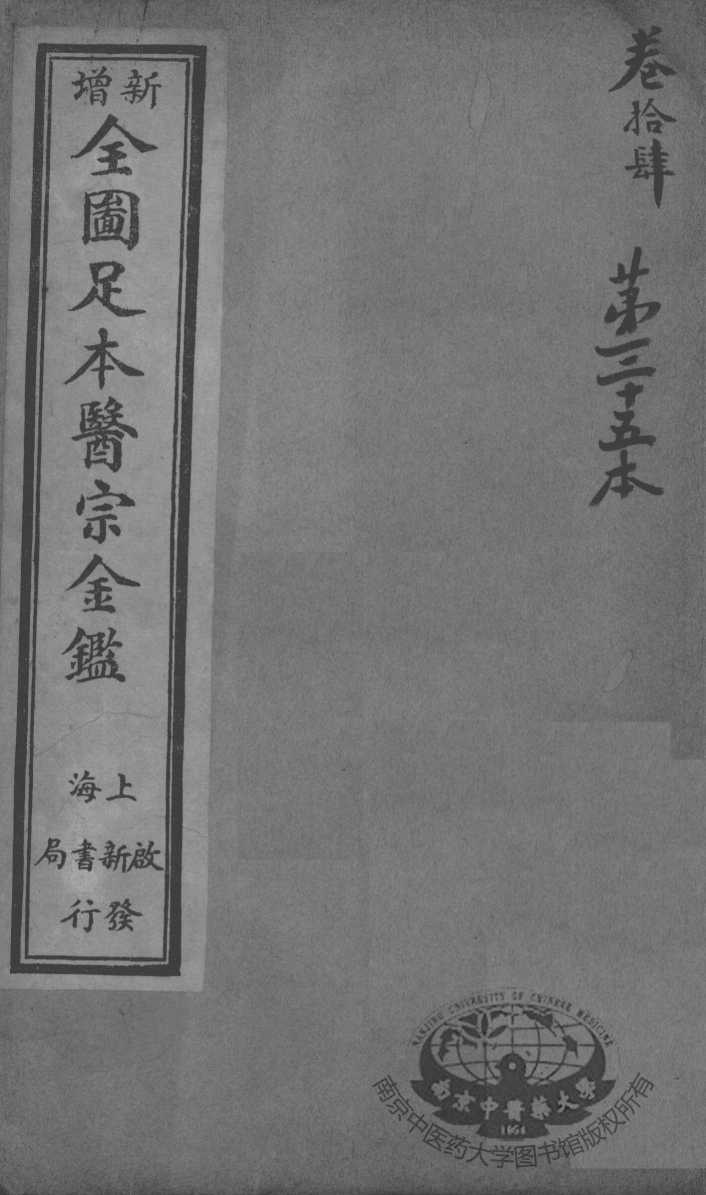 卷拾肆 第三十五本
新增
全圖足本醫宗金鑑
上海
啟新書局
發行
NANJING UNIVERSITY OF CHINESE MEDICINE
南京中醫藥大學
1954
南京中医药大学图书馆版权所有